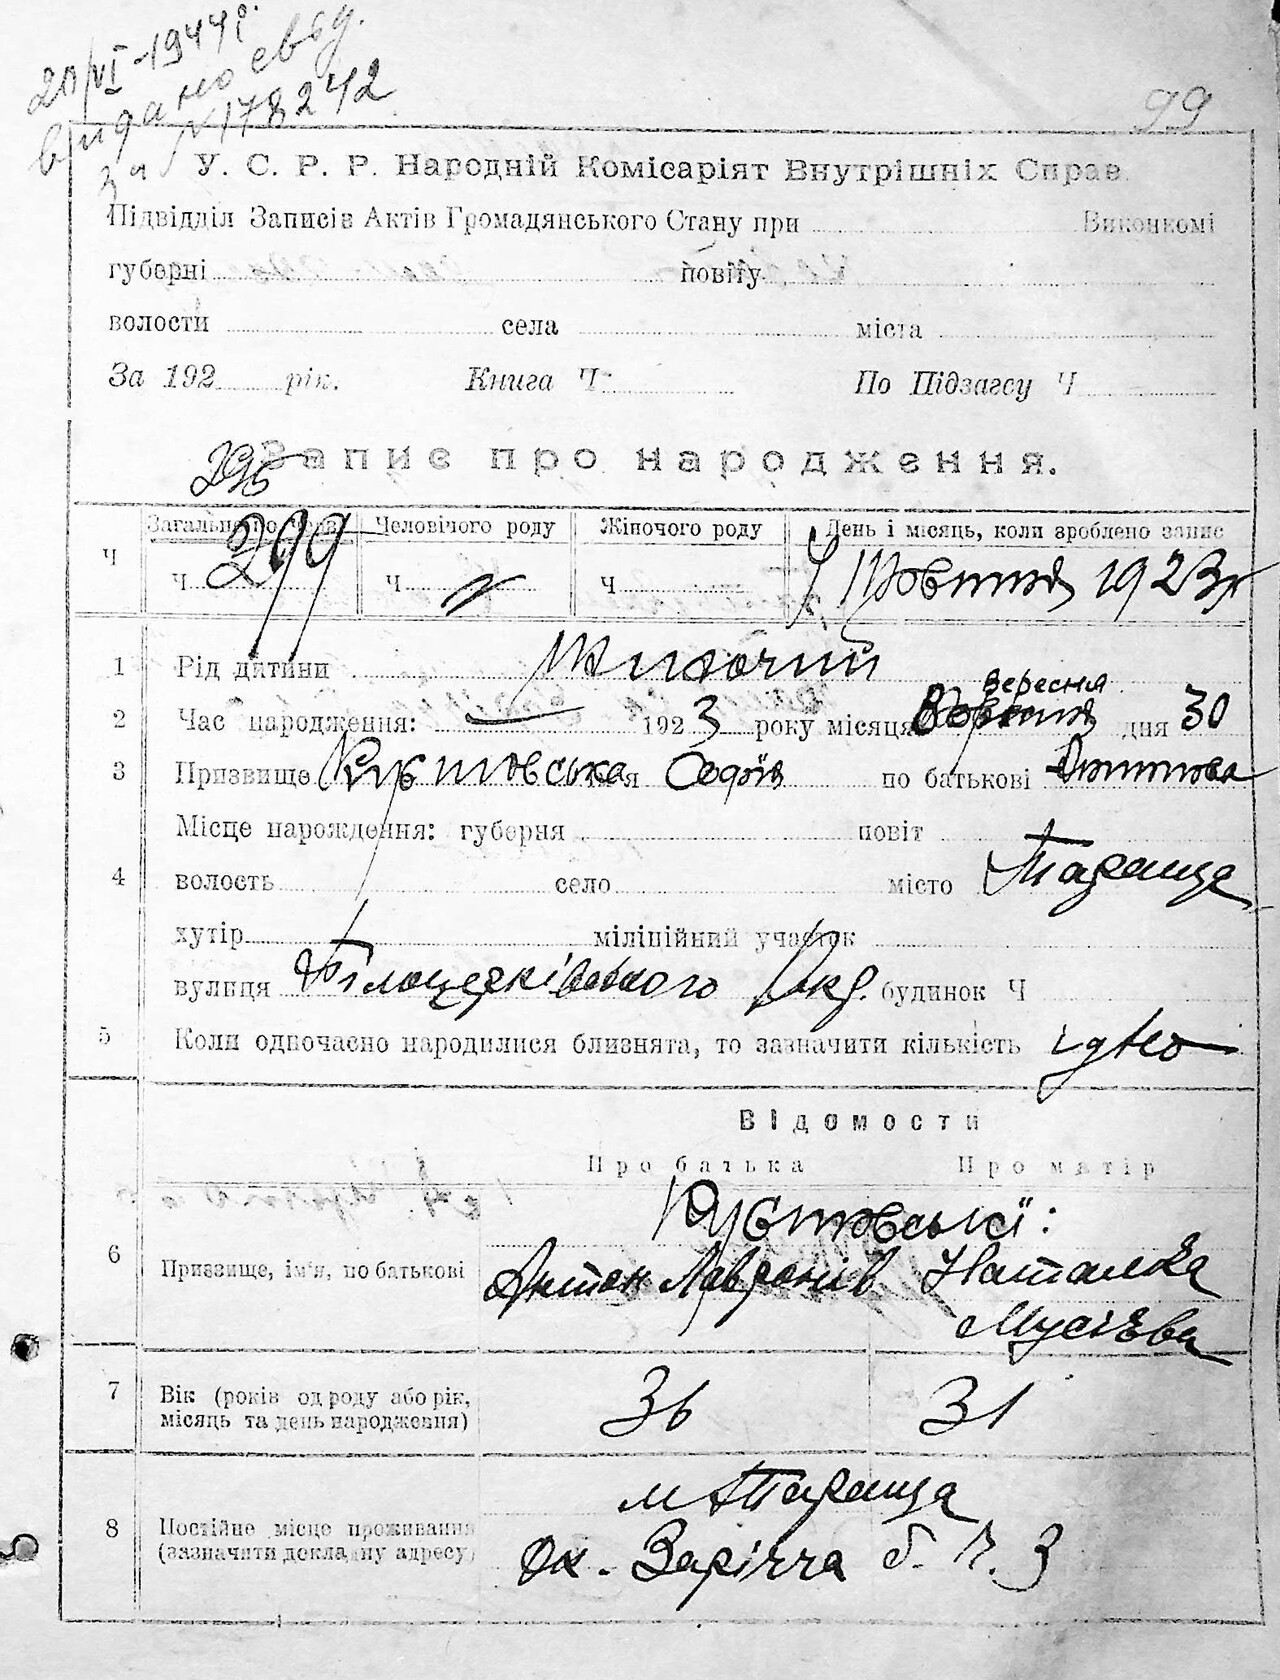 20/VI-1944 р.
видано свід.
за №178242
99
У. С. Р. Р. Народній Комісаріят Внутрішніх Справ
Підвідділ Записів Актів Громадянського Стану при Виконкомі
губерні повіту
волости села міста
За 192 рік. Книга Ч. По Підзагсу Ч
Запис про народження.
395
Ч Загального Человічого роду Жіночого роду День і місяць, коли зроблено запис
Ч. 299 Ч. Ч 4 Жовтня 1923 р
1 Рід дитини Жиночий
вересня
2 Час народження: 1923 року місяця Жовтня дня 30
3 Призвище імя Софія по батькові Антонова
Місце нарождення: губерня повіт
4 волость село місто Тараща
хутір міліційний участок
вулиця Білоцерківського Окр. будинок Ч
5 Коли одночасно народилися близнята, то зазначити кількість одно
Відомости
Про батька Про матір
6 Призвище, ім'я, по батькові Антон Лавронів Наталка
Мусієва
7 Вік (років од роду або рік, 36 31
місяць та день народження)
м Тараща
8 Постійне місце проживання
(зазначити докладну адресу) Ок. Заріччя б. ч. 3